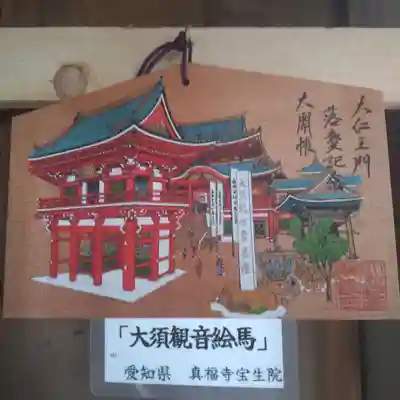 大仁王門
落慶記念
大開帳
「大須観音絵馬」
愛知県　真福寺宝生院